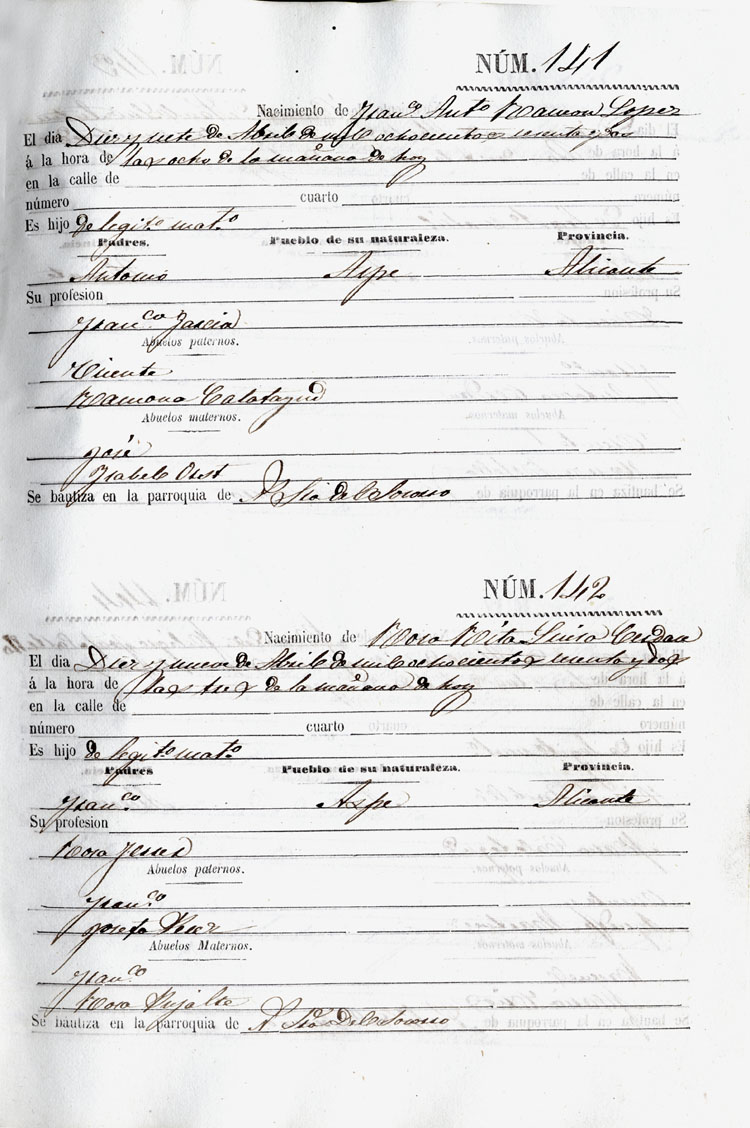 NÚM. 141
Nacimiento de Fran.co Ant.o Ramon Lopez
El dia Diez y siete de Abril de mil ochocientos sesenta y dos
á la hora de las ocho de la mañana de hoy
en la calle de
número cuarto
Es hijo de legit.o mat.o
Padres. Pueblo de su naturaleza. Provincia.
Antonio Aspe Alicante
Su profesion
Fran.ca Garcia
Abuelos paternos.
Vicente
Ramona Calatayud
Abuelos maternos.
José
Ysabel
Se bautiza en la parroquia de N. Sra del Socorro
NÚM. 142
Nacimiento de Rosa Rita Luisa Cerdan
El dia Diez y nueve de Abril de mil ochocientos sesenta y dos
á la hora de las tres de la mañana de hoy
en la calle de
número cuarto
Es hijo de legit.o mat.o
Padres Pueblo de su naturaleza. Provincia.
Fran.co Aspe Alicante
Su profesion
Rosa
Abuelos paternos.
Fran.co
Josefa
Abuelos Maternos.
Fran.co
Rosa Pujalte
Se bautiza en la parroquia de N. Sra del Socorro